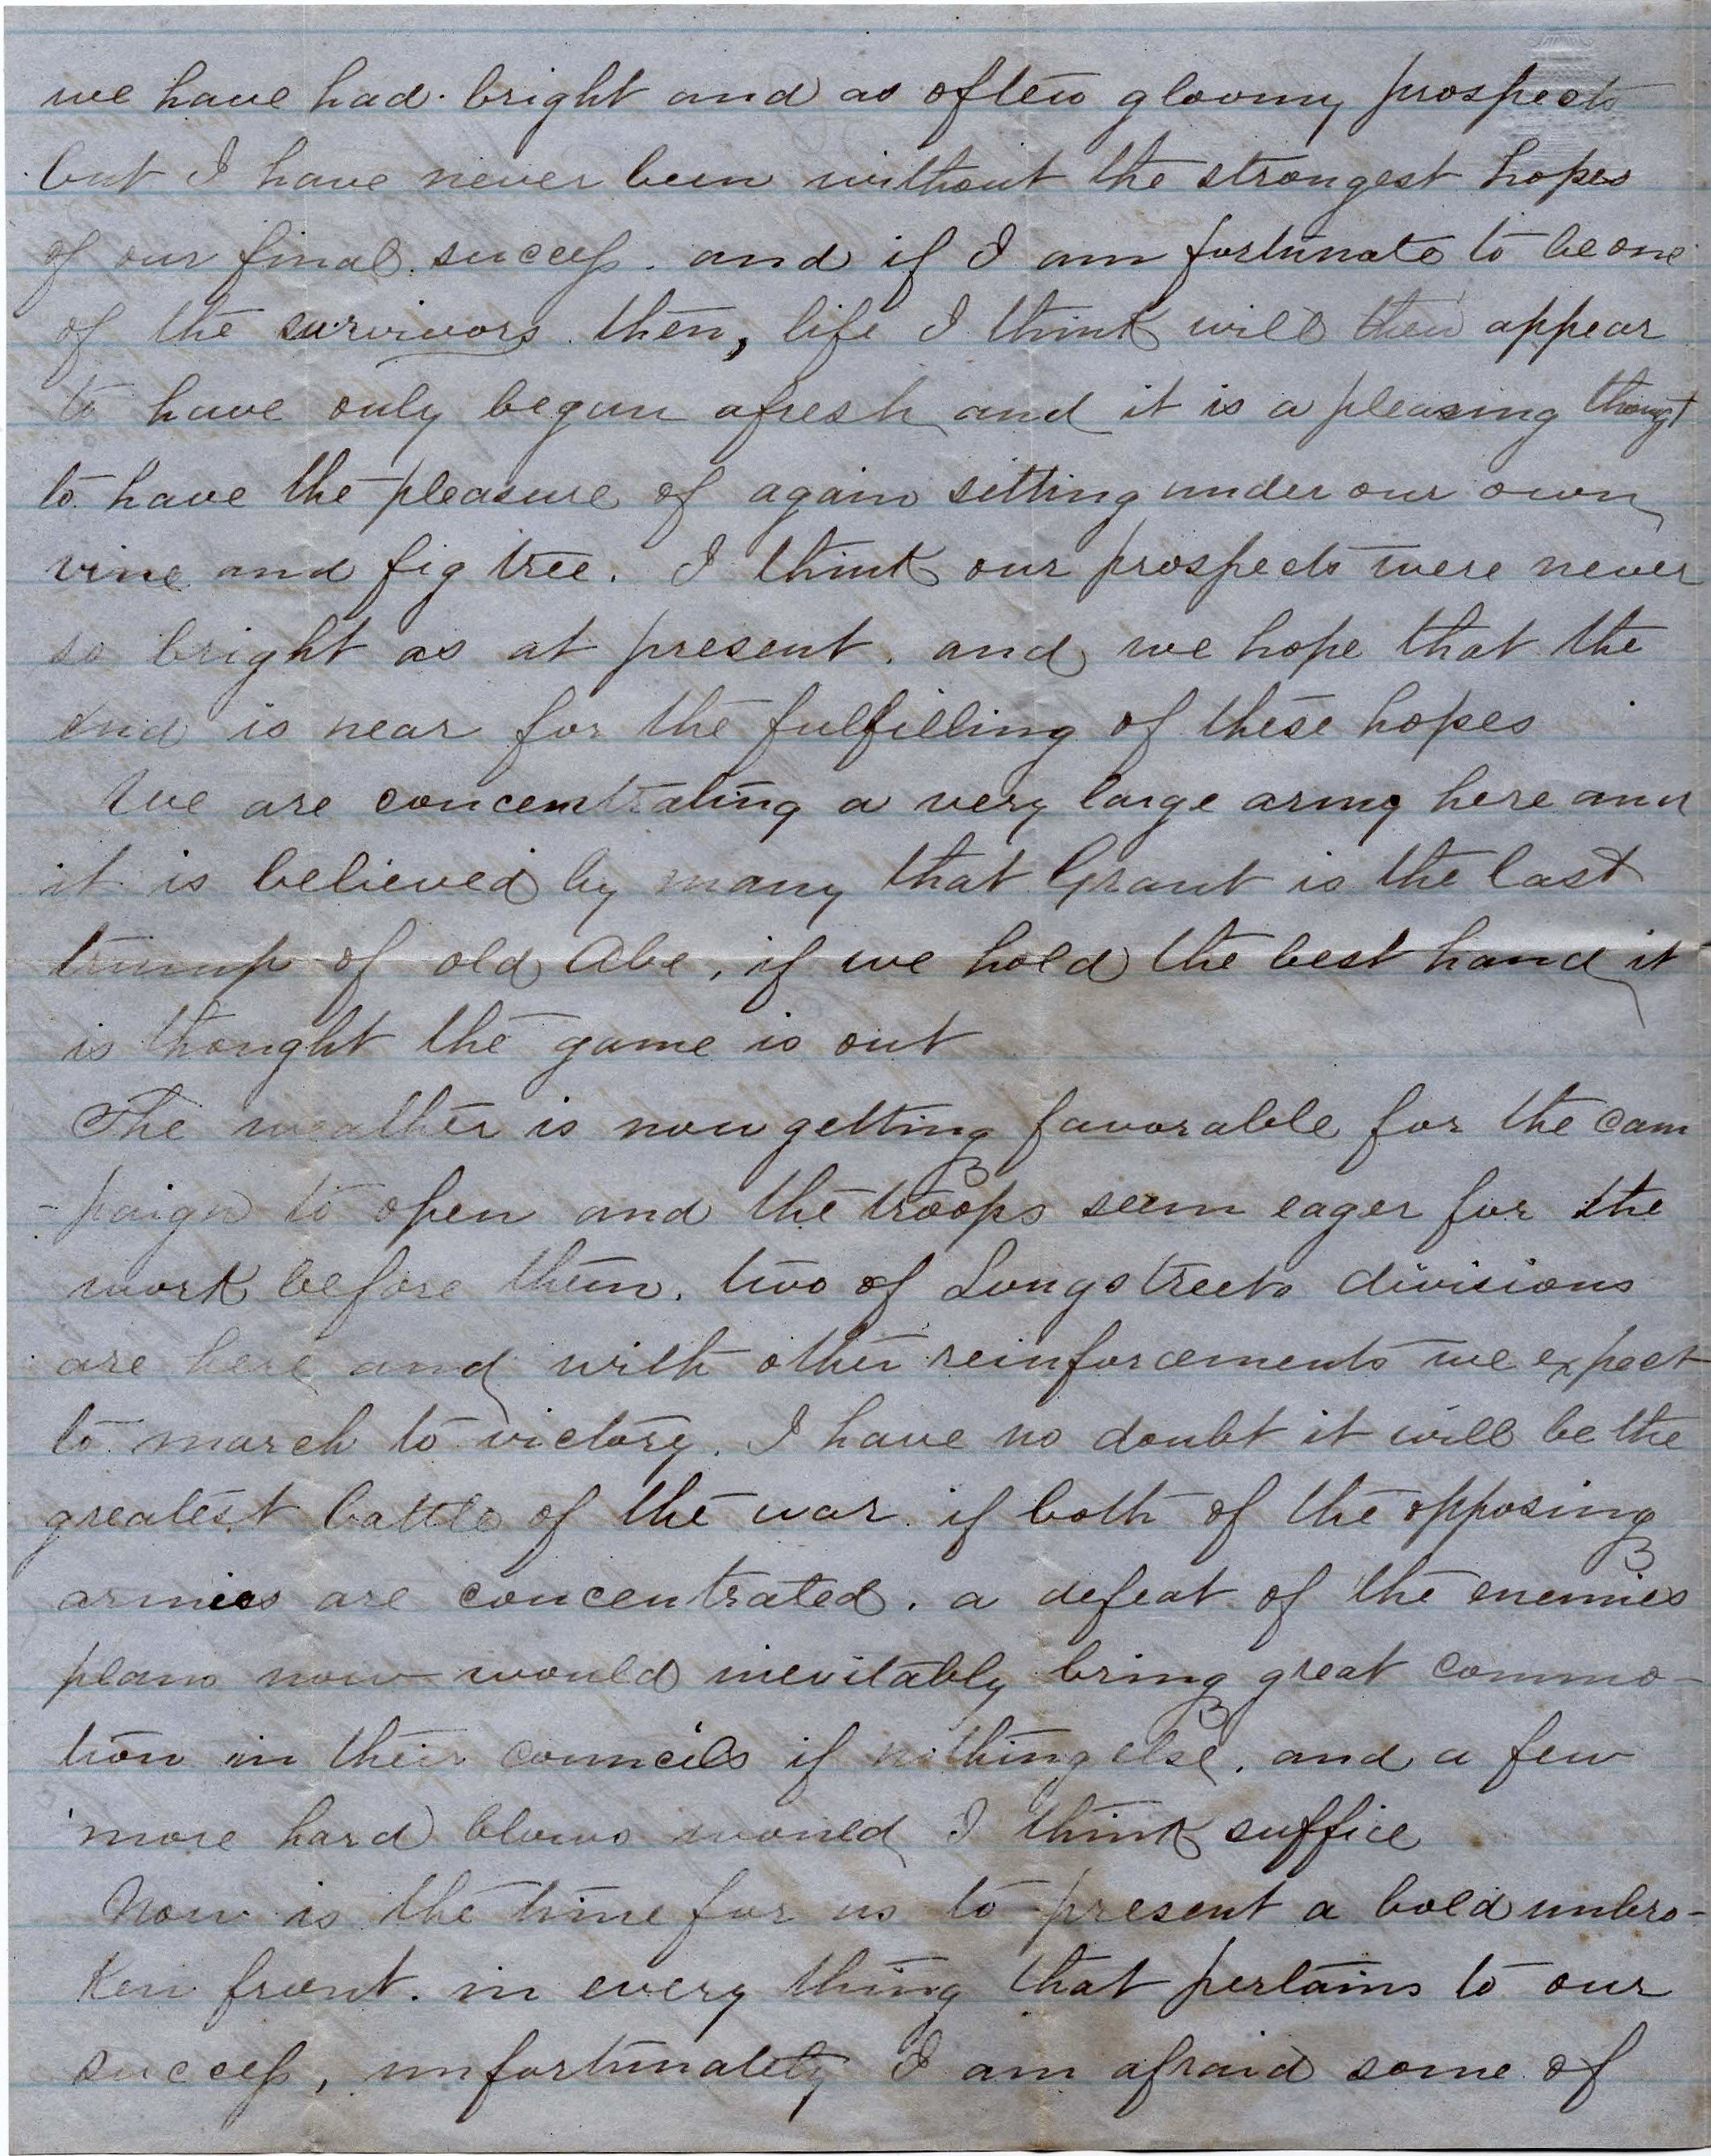 we have had bright and as often gloomy prospects
but I have never been without the strongest hopes
of our final success. and if I am fortunate to be one
of the survivors then, life I think will then appear
to have only begun afresh and it is a pleasing thougt
to have the pleasure of again sitting under our own
vine and fig tree. I think our prospects were never
so bright as at present. and we hope that the
end is near for the fulfilling of these hopes
We are concentrating a very large army here and
it is believed by many that Grant is the last
trump of old Abe, if we hold the best hand it
is thought the game is out
The weather is now getting favorable for the cam
-paign to open and the troops seem eager for the
work before them. two of Longstreets divisions
are here and with other reinforcements we expect
to march to victory. I have no doubt it will be the
greatest battle of the war if both of the opposing
armies are concentrated. a defeat of the enemies
plans now would inevitably bring great commo-
tion in their councils if nothing else. and a few
more hard blows would I think suffice
Now is the time for us to present a bold unbro-
ken front. in every thing that pertains to our
success, unfortunately I am afraid some of